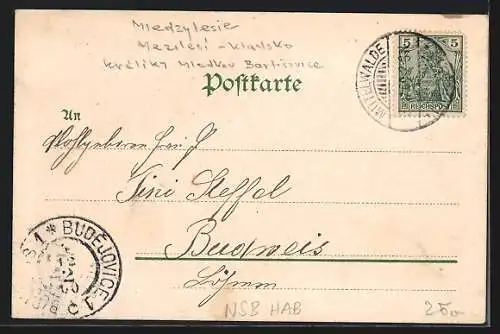 Miedzylesie
Mezilesí - Kladsko
Králíky Mladkov Bartošovice
Postkarte
An
Wohlgeboren Frau
Tini Steffel
Budweis
Böhmen
MITTELWALDE
5 5
REICHSPOST
1 * BUDĚJOVICE 1
NSB HAB
250